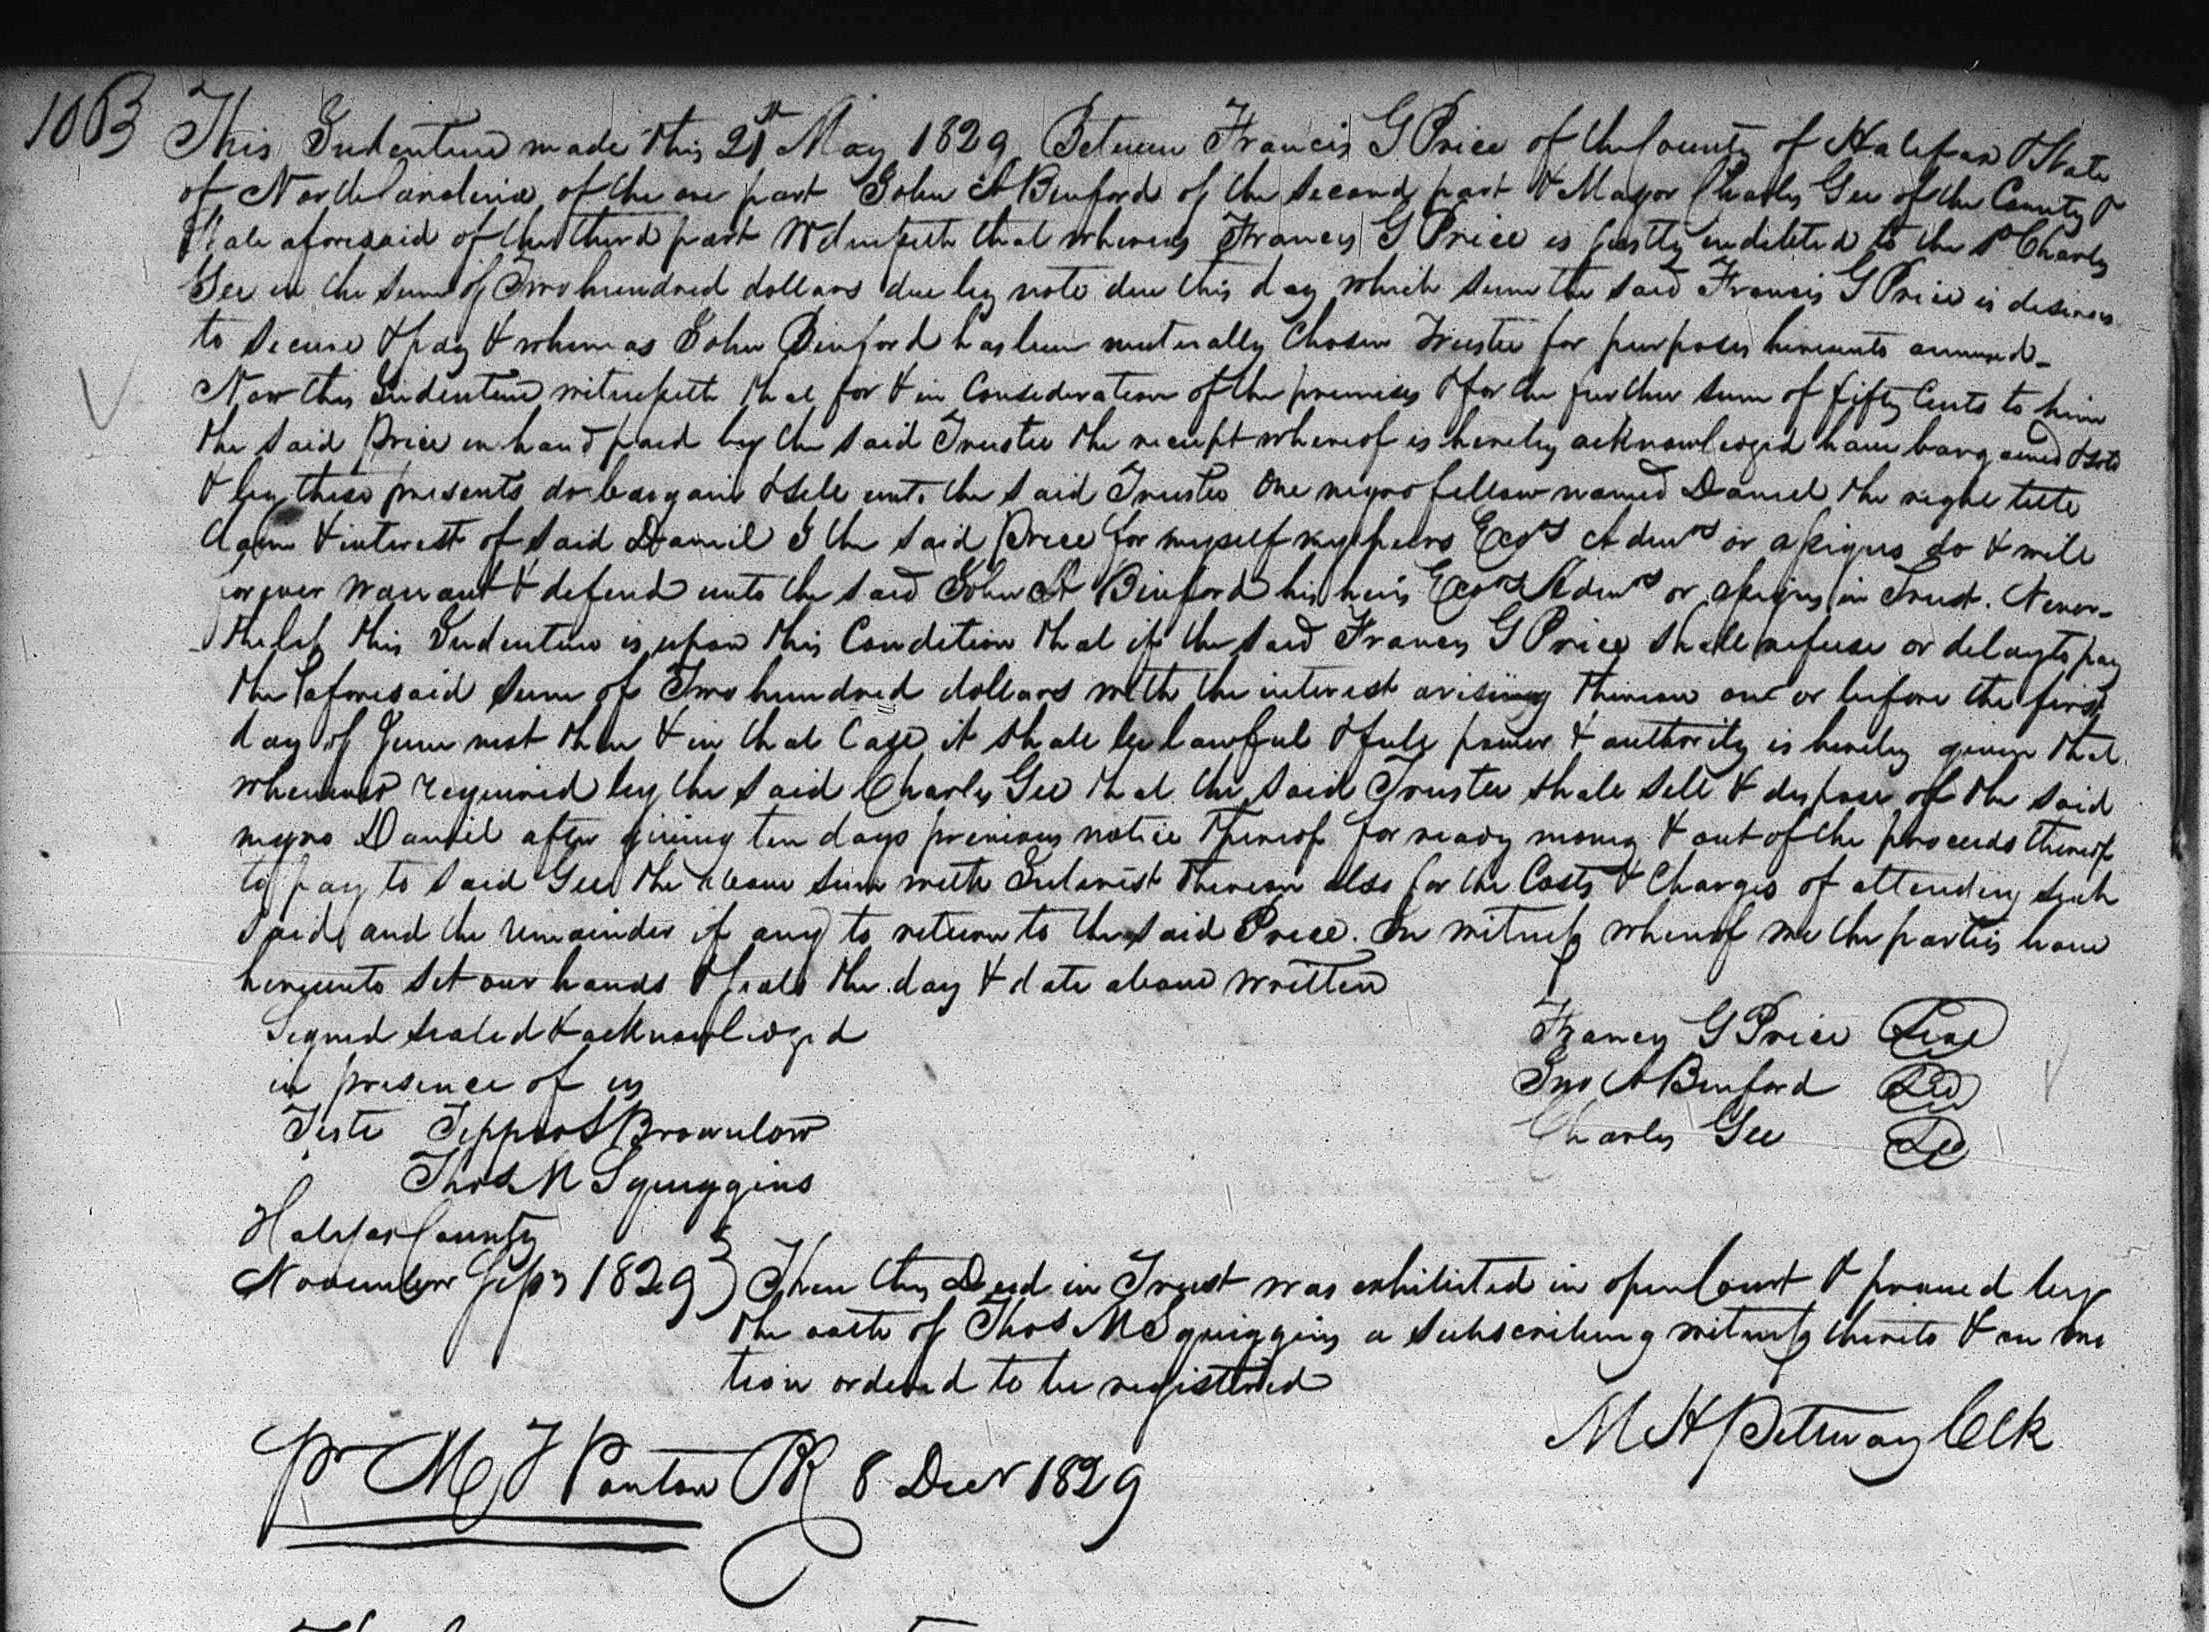 10B This Indenture made this 21st May 1829 Between Francis G Price of the County of Halifax & State
of North Carolina of the one part John A Binford of the second part & Major Charles Gee of the County &
State aforesaid of the third part Witnesseth that whereas Francis G Price is justly indebted to the sd Charles
Gee in the sum of Two hundred dollars due by note due this day which sum the said Francis G Price is desirous
to secure & pay & whereas John Binford has been mutually Chosen Trustee for purposes hereunto annexed
Now this Indenture witnesseth that for & in Consideration of the premises & for the further sum of fifty Cents to him
the said Price in hand paid by the said Trustee the receipt whereof is hereby acknowledged have bargained & sold
& by these presents do bargain & sell unto the said Trustee One negro fellow named Daniel the right title
Claim & interest of said Daniel I the said Price for myself my heirs Exors Admrs or assigns do & will
forever warrant & defend unto the said John A Binford his heirs Exors Admrs or assigns in Trust. Never-
theless this Indenture is upon this Condition that if the said Francis G Price shall refuse or delay to pay
the aforesaid sum of Two hundred dollars with the interest arising thereon on or before the first
day of June next then & in that Case it shall be lawful & full power & authority is hereby given that
whenever required by the said Charles Gee that the said Trustee shall sell & dispose of the said
negro Daniel after giving ten days previous notice thereof for ready money & out of the proceeds thereof
to pay to said Gee the above sum with Interest thereon also for the Costs & Charges of attending such
said and the remainder if any to return to the said Price. In witness whereof we the parties have
hereunto set our hands & seals the day & date above written
Signed sealed & acknowledged
in presence of us
Francis G Price Seal
Jno A Binford
Charles Gee
Teste Brownlow
Thos M Squiggins
Halifax County
November Sess 1829 } Then this Deed in Trust was exhibited in open Court & proved by
the oath of Thos M Squiggins a subscribing witness thereto & on mo
tion ordered to be registered
M H Pettway Clk
Pr M T Ponton PR 8 Decr 1829